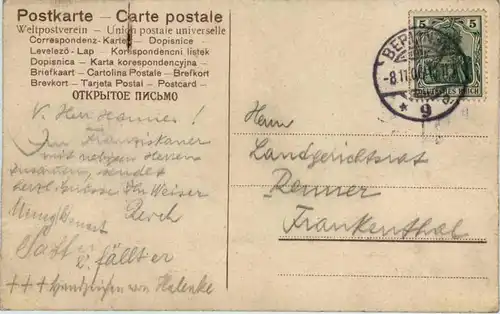 Postkarte - Carte postale
Weltpostverein - Union postale universelle
Correspondenz-Karte - Dopisnice
Levelező-Lap - Korespondencni listek
Dopisnica - Karta korespondencyjna -
Briefkaart - Cartolina Postale - Brefkort
Brevkort - Tarjeta Postal - Postcard -
ОТКРЫТОЕ ПИСЬМО
5 5
DEUTSCHES REICH
BERLIN
-8.11.0
* 9
V. Herr Hanner!
Im Franziskaner
mit nebigen Herren
zusammen, sendet
herzl. Grüsse Ihr Weiser
fällt er
+++ Handzeichen von Halenke
Herrn
Landgerichtsrat
Renner
Frankenthal